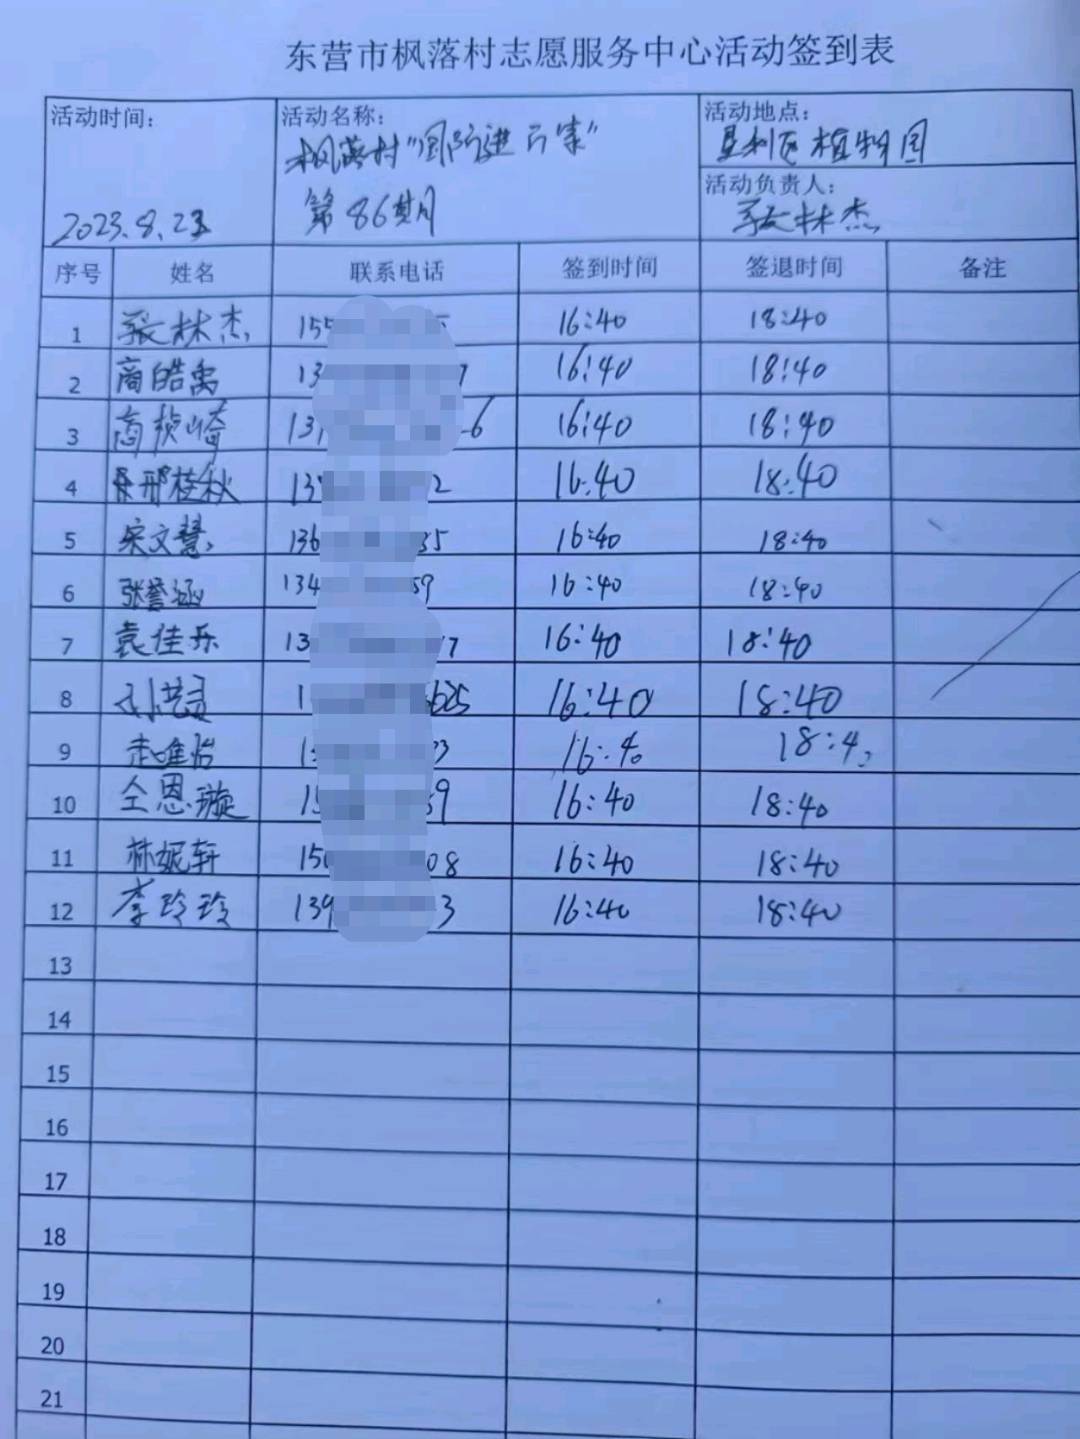 东营市枫落村志愿服务中心活动签到表
活动时间： 2023.8.23
活动名称： 枫落村“国防进万家” 第86期
活动地点： 垦利区植物园
活动负责人： 张林杰
序号 姓名 联系电话 签到时间 签退时间 备注
1 张林杰 155 5 16:40 18:40
2 商皓禹 13 7 16:40 18:40
3 商桢崎 13 6 16:40 18:40
4 邢桂秋 13 2 16:40 18:40
5 宋文慧 136 35 16:40 18:40
6 张誉涵 134 59 16:40 18:40
7 袁佳乐 13 7 16:40 18:40
8 1 625 16:40 18:40
9 赵唯怡 1 3 16:40 18:40
10 仝恩璇 15 59 16:40 18:40
11 林妮轩 150 08 16:40 18:40
12 李玲玲 139 3 16:40 18:40
13
14
15
16
17
18
19
20
21